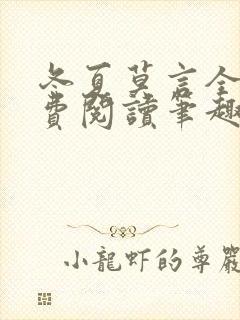 冬夏莫言全
費閱讀筆趣
小龍蝦的尊嚴